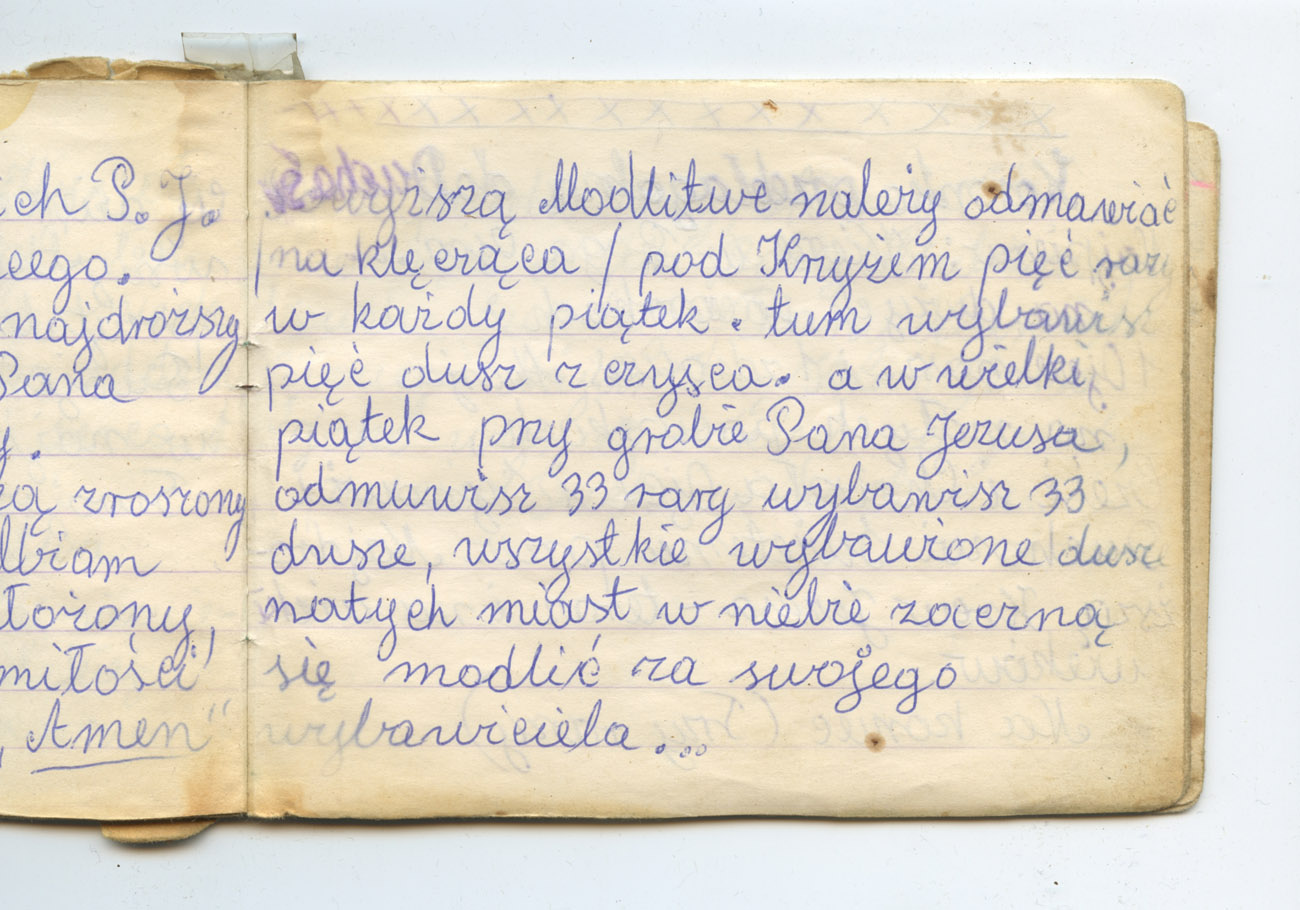 ich P. J.
najdroższy
Pana
y.
zą zroszony
łożony,
miłości
, Amen"
Modlitwe należy odmawiać
/na klęcząca / pod Knyżem pięć razy
w każdy piątek. tum wybawisz
pięć dusz z czysca. a w wielki
piątek pszy grobie Pana Jezusa
odmuwisz 33 razy wybawisz 33
dusze, wszystkie wybawione dusze
natych miast w niebie zaczną
się modlić za swojego
wybawiciela...